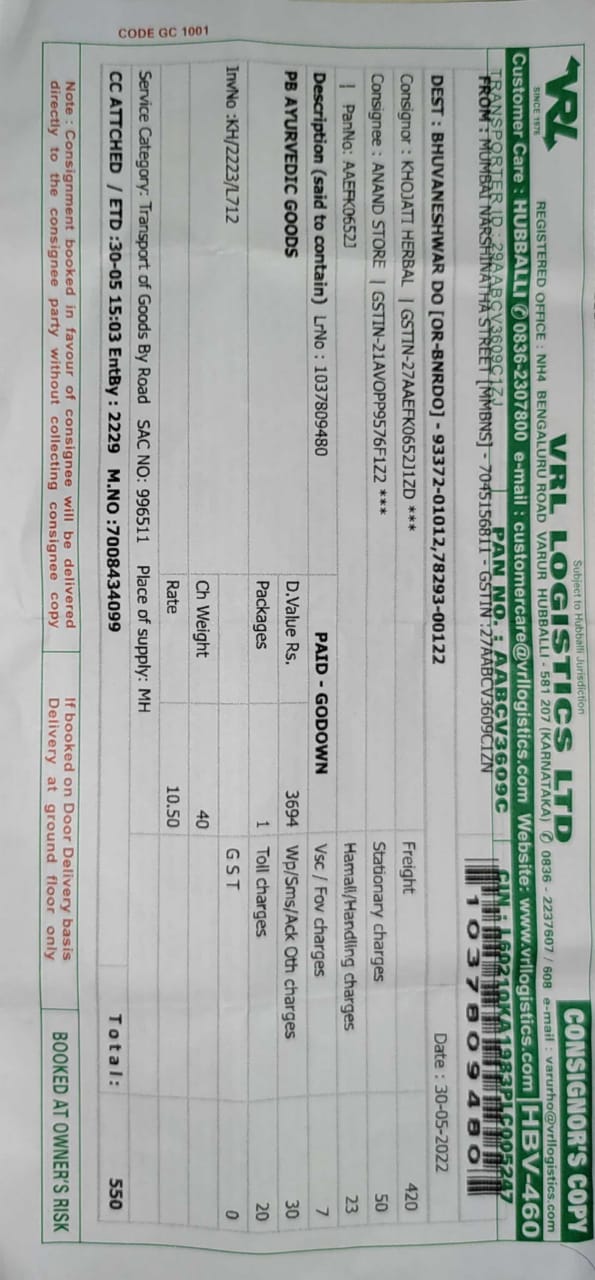 Subject to Hubballi Jurisdiction
CONSIGNOR'S COPY
VRL
SINCE 1976
VRL LOGISTICS LTD
REGISTERED OFFICE : NH4 BENGALURU ROAD VARUR HUBBALLI - 581 207 (KARNATAKA) ✆ 0836 - 2237607 / 608 e-mail : varurho@vrllogistics.com
Customer Care : HUBBALLI ✆ 0836-2307800 e-mail : customercare@vrllogistics.com Website: www.vrllogistics.com HBV-460
TRANSPORTER ID : 29AABCV3609C1ZJ PAN NO. : AABCV3609C CIN : L60210KA1983PLC005247
FROM : MUMBAI NARSHINATHA STREET [MMBNS] - 7045156811 - GSTIN :27AABCV3609C1ZN
1037809480
DEST : BHUVANESHWAR DO [OR-BNRDO] - 93372-01012,78293-00122 Date : 30-05-2022
Consignor : KHOJATI HERBAL | GSTIN-27AAEFK0652J1ZD *** Freight 420
Consignee : ANAND STORE | GSTIN-21AVOPP9576F1Z2 *** Stationary charges 50
| PanNo: AAEFK0652J Hamali/Handling charges 23
Description (said to contain) LrNo : 1037809480 PAID - GODOWN Vsc / Fov charges 7
PB AYURVEDIC GOODS D.Value Rs. 3694 Wp/Sms/Ack Oth charges 30
Packages 1 Toll charges 20
InvNo :KH/2223/L712 G S T 0
Ch Weight 40
Rate 10.50
Service Category: Transport of Goods By Road SAC NO: 996511 Place of supply: MH
CC ATTCHED / ETD :30-05 15:03 EntBy : 2229 M.NO :7008434099 Total: 550
Note : Consignment booked in favour of consignee will be delivered
directly to the consignee party without collecting consignee copy
If booked on Door Delivery basis
Delivery at ground floor only
BOOKED AT OWNER'S RISK
CODE GC 1001